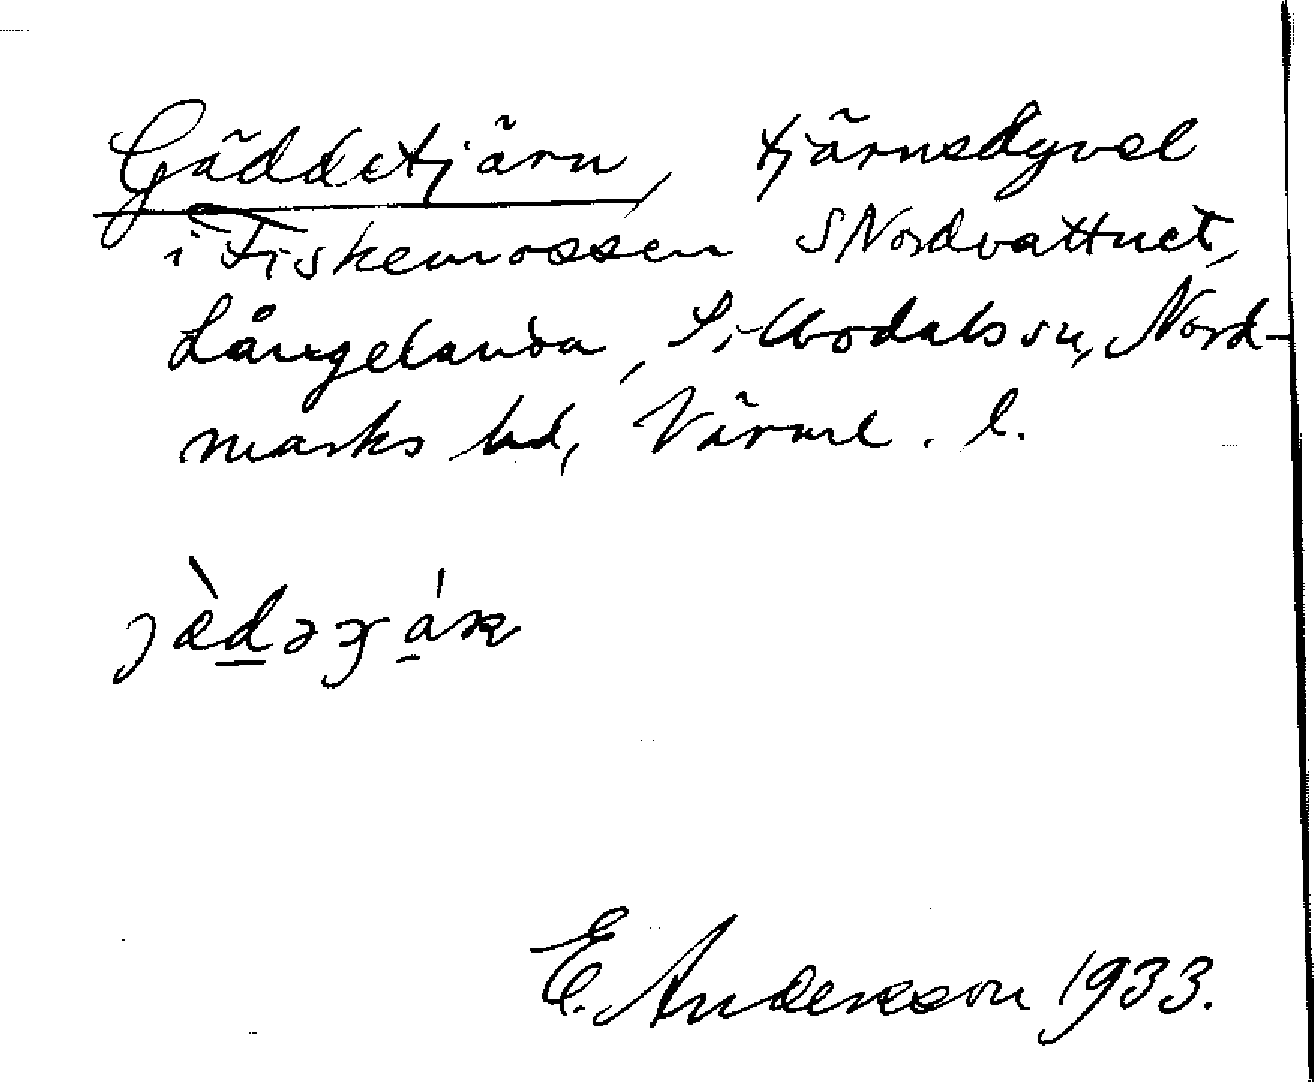 Gäddetjärn, tjärnsdyvel
i Fiskemossen S Nordvattnet,
Långelanda, Sillbodals sn, Nord-
marks hd, Värml. l.
E. Andersson 1933.